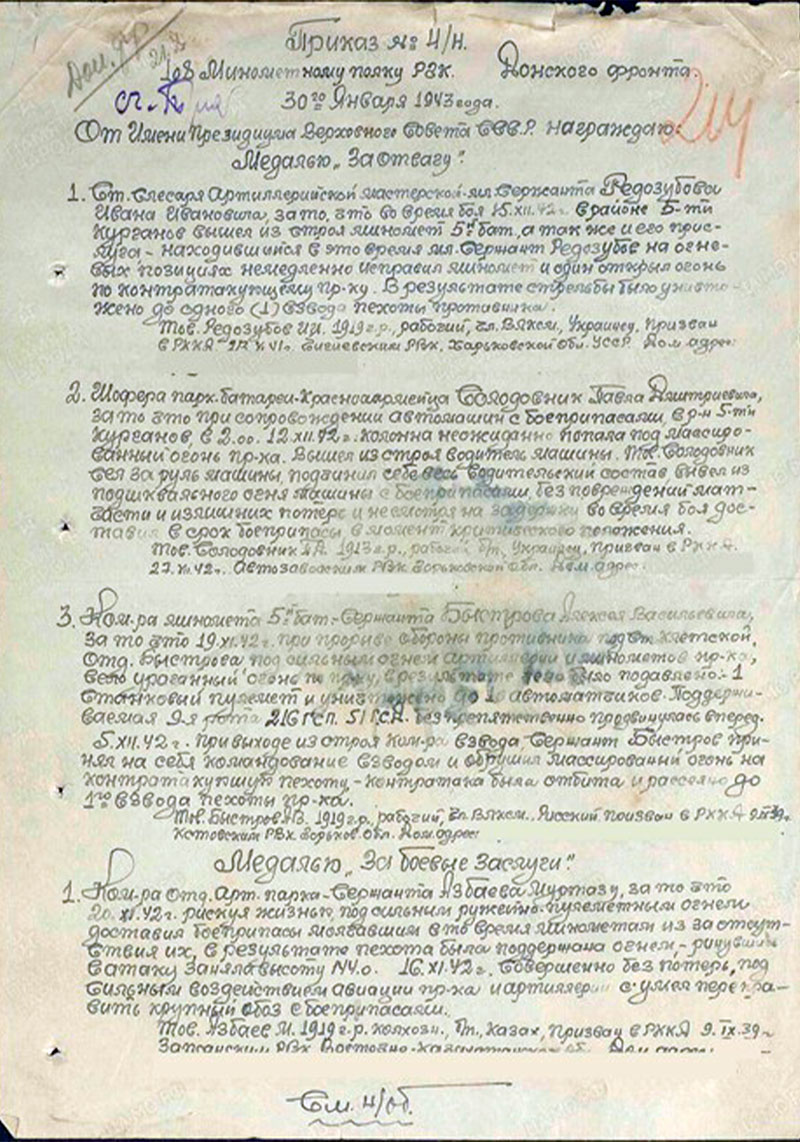 Приказ № 4/н.
108 Минометному полку РВК. Донского фронта.
30го Января 1943 года.
214
От имени Президиума Верховного Совета СССР. награждаю:
Медалью „За Отвагу":
1. Ст. слесаря Артиллерийской мастерской-мл. сержанта Редозубова
Ивана Ивановича, за то, что во время боя 15.XII.42г. в районе 5-ти
Курганов вышел из строя миномет 5й бат, а так же и его прис-
луга - находившийся в это время мл. сержант Редозубов на огне-
вых позициях немедленно исправил миномет и один открыл огонь
по контратакующему пр-ку. В результате стрельбы было уничто-
жено до одного (1) взвода пехоты противника.
Тов. Редозубов И.И. 1919 г.р., рабочий, чл. ВЛКСМ, Украинец, призван
в РККА РВК, Харьковской обл. УССР. Дом. адрес:
2. Шофера парк. батареи-Красноармейца Солодовник Павла Дмитриевича,
за то что при сопровождении автомашин с боеприпасами, в р-н 5-ти
Курганов, в 2.00. 12.XII.42г. колонна неожиданно попала под массиро-
ванный огонь пр-ка. Вышел из строя водитель машины. Тов. Солодовник
сел за руль машины, подчинил себе весь водительский состав вывел из
под шквального огня машины с боеприпасами, без повреждений мат-
части и излишних потерь и несмотря на задержки во время боя дос-
тавил в срок боеприпасы в момент критического положения.
Тов. Солодовник 1913 г.р., рабочий, Украинец, призван в РККА
Автозаводским РВК Горьковской обл. Дом. адрес:
3. Ком-ра миномета 5й бат.-Сержанта Быстрова Алексея Васильевича,
за то что 19.XI.42г. при прорыве обороны противника под ст. Клетской,
Отд. Быстрова под сильным огнем артиллерии и минометов пр-ка,
вело ураганный огонь по пр-ку, в результате чего было подавлено:- 1
станковый пулемет и уничтожено до автоматчиков. Поддержи-
ваемая 9-я рота 216 ГСП. 51 ГСД. беспрепятственно продвинулась вперед.
5.XII.42г. при выходе из строя ком-ра взвода, Сержант Быстров при-
нял на себя командование взводом и обрушил массированный огонь на
контратакующую пехоту, - контратака была отбита и рассеяно до
1го взвода пехоты пр-ка.
Тов. Быстров А.В. 1919 г.р., рабочий, чл. ВЛКСМ., Русский призван в РККА 9.IX.39г.
Кстовским РВК Горьков. обл. Дом. адрес:
Медалью „За боевые заслуги":
1. Ком-ра Отд. Арт. парка-Сержанта Азбаева Муртазу, за то что
20.XI.42г. рискуя жизнью, под сильным ружейно-пулеметным огнем
доставил боеприпасы молчавшим в то время минометам из за отсут-
ствия их, в результате пехота была поддержана огнем,- ринувшись
в атаку заняла высоту 16.XI.42г. совершенно без потерь, под
сильным воздействием авиации пр-ка и артиллерии сумел перепра-
вить крупный обоз с боеприпасами.
Тов. Азбаев М. 1919 г.р. колхозн., Казах, призван в РККА 9.IX.39г.
РВК Восточно-Казахстанской об. Дом. адрес:
См. 4/об.